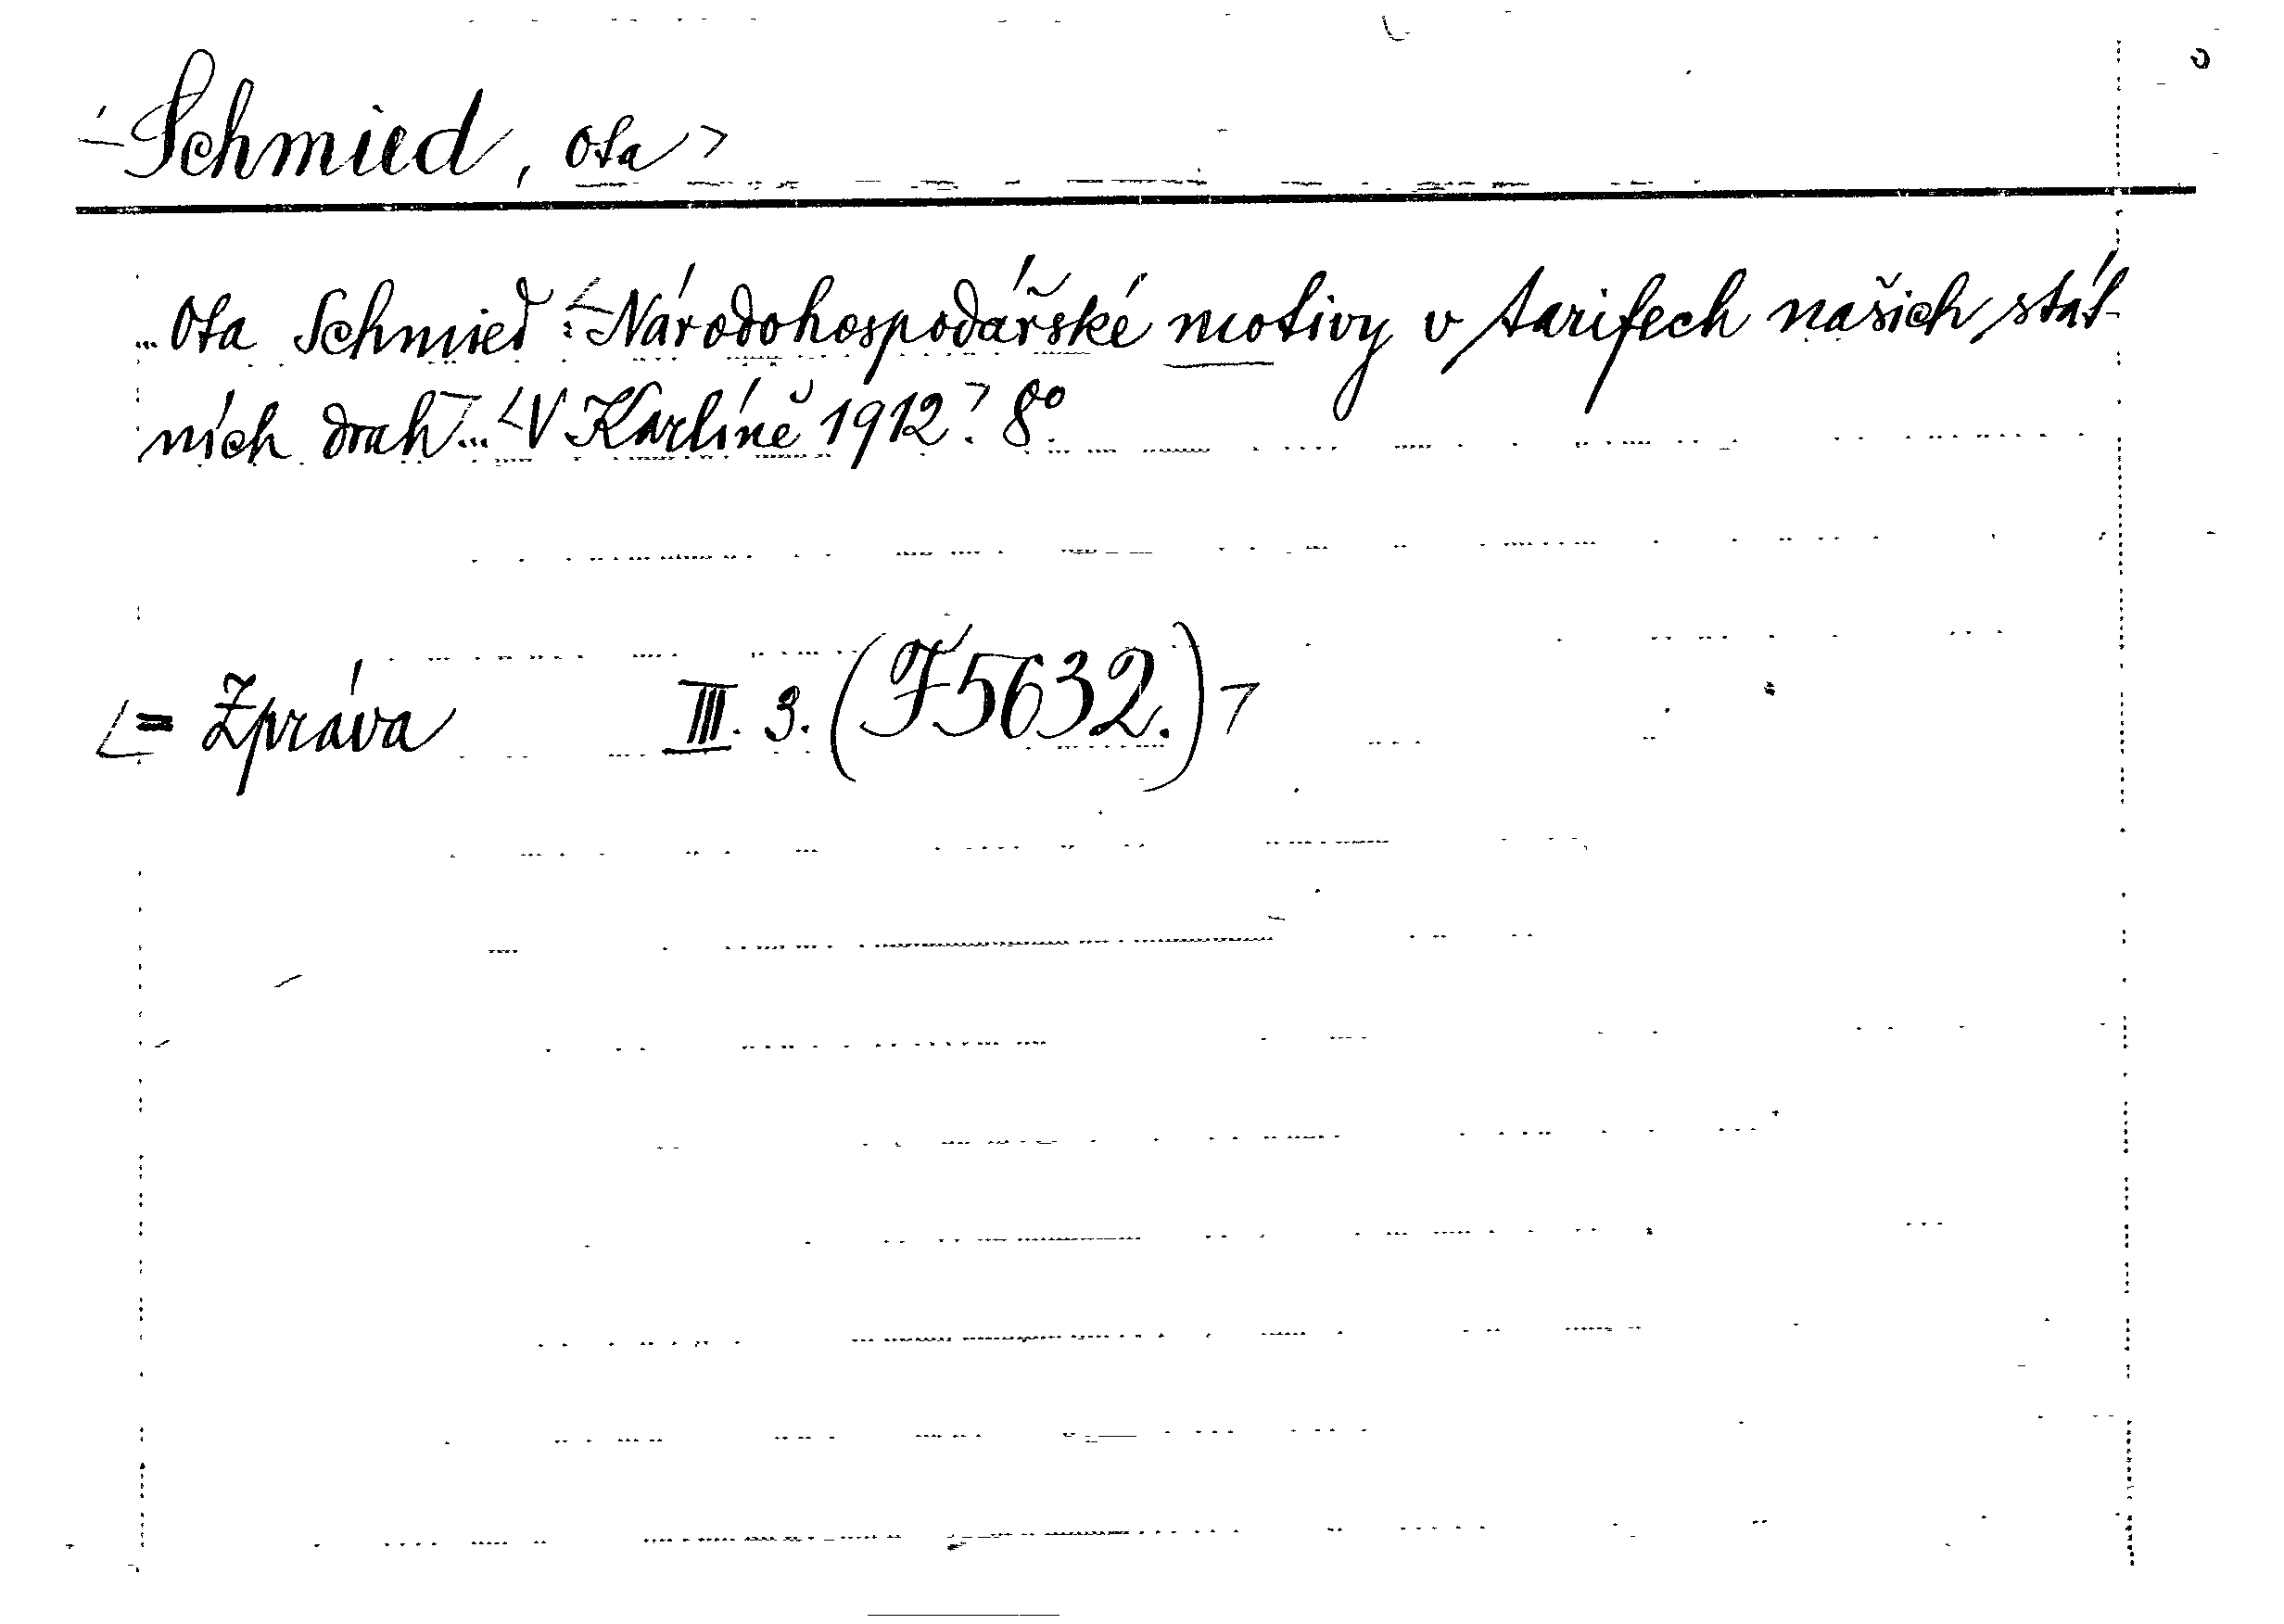 Schmied, Ota
... Ota Schmied: Národohospodářské motivy v tarifech našich stát-
ních drah... V Karlíně 1912. 8°.
= Zpráva III. 3. (F 5632.)